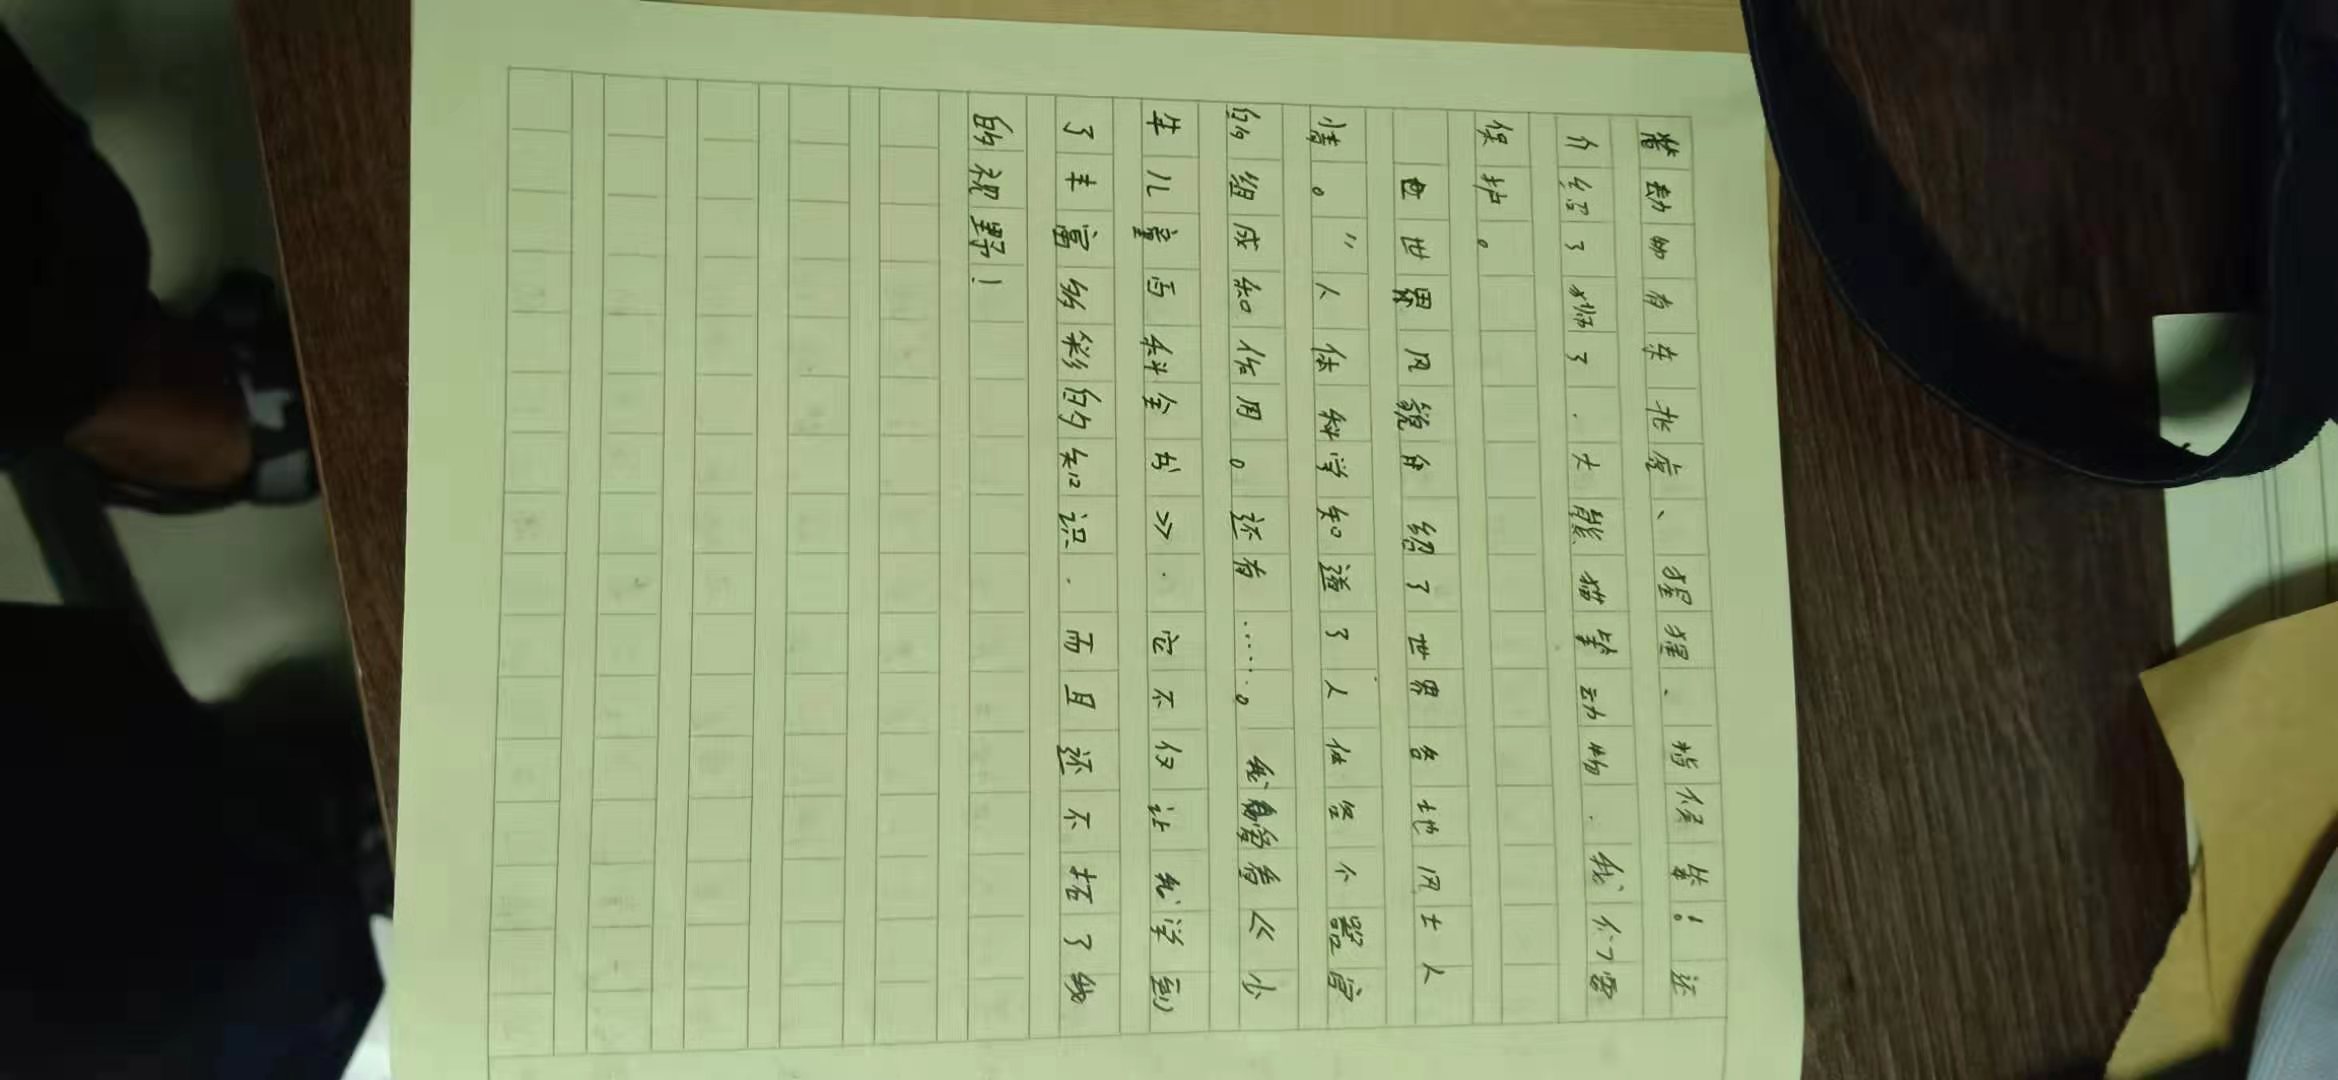 物有东北虎、猩猩、
介绍了狮了.大熊猫等动物.我们需
保护。
世界风貌 绍了世界各地风土人
情。"人体科学知道了人体各个器官
的组成和作用。还有……。我 看《少
年儿童百科全书》.它不仅让我学到
了丰富多彩的知识.而且还不拓了我
的视野!